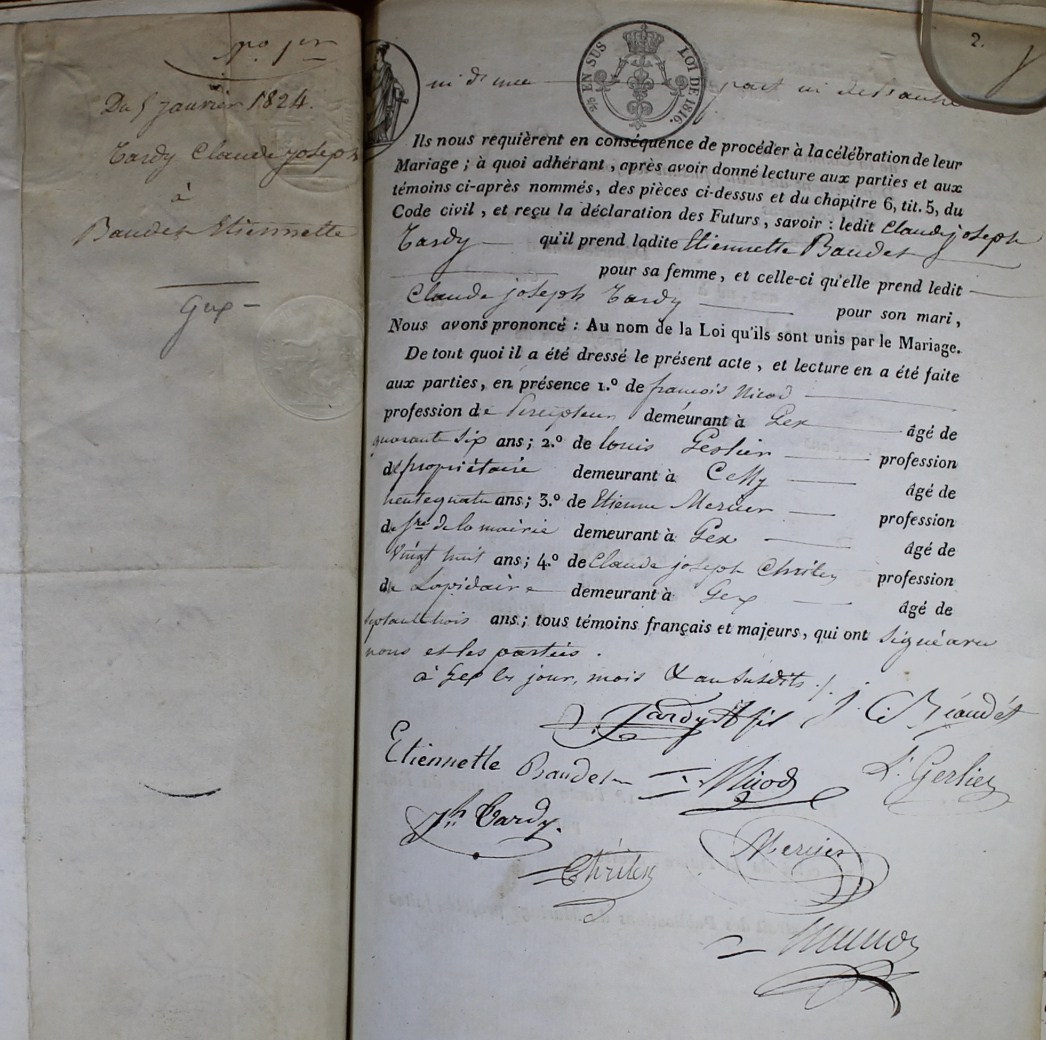 N.o 1er
Du 5 janvier 1824.
Tardy Claude joseph
à
Baudet Etiennette
Gex
2.
EN SUS LOI DE 1816.
ni d'une part ni de l'autre
Ils nous requièrent en conséquence de procéder à la célébration de leur
Mariage ; à quoi adhérant , après avoir donné lecture aux parties et aux
témoins ci-après nommés, des pièces ci-dessus et du chapitre 6, tit. 5, du
Code civil , et reçu la déclaration des Futurs , savoir : ledit Claude joseph
Tardy qu'il prend ladite Etiennette Baudet
pour sa femme, et celle-ci qu'elle prend ledit
Claude joseph Tardy pour son mari ,
Nous avons prononcé : Au nom de la Loi qu'ils sont unis par le Mariage.
De tout quoi il a été dressé le présent acte , et lecture en a été faite
aux parties, en présence 1.º de françois Nicod
profession de Percepteur demeurant à Gex âgé de
quarante six ans ; 2.º de louis Gerlier profession
de propriétaire demeurant à Cessy âgé de
trente quatre ans ; 3.º de Etienne Mercier profession
de Sre de la mairie demeurant à Gex âgé de
vingt huit ans ; 4.º de Claude joseph profession
de Lapidaire demeurant à Gex âgé de
septante trois ans ; tous témoins français et majeurs , qui ont signé avec
nous et les parties .
à Gex les jour, mois & an susdits ./.
Tardy fils J. C. Béaudet
Etiennette Baudet Nicod L. Gerlier
Jh. Tardy.
Mercier